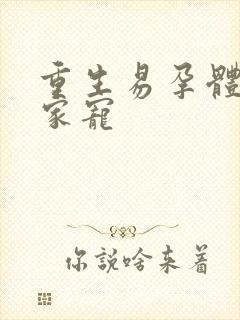 重生易孕體
家寵
你說啥来着